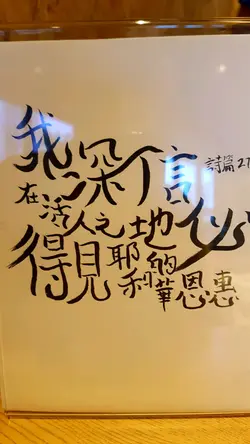 我深信
詩篇 27
在活人之土地必
得見耶利的華恩惠